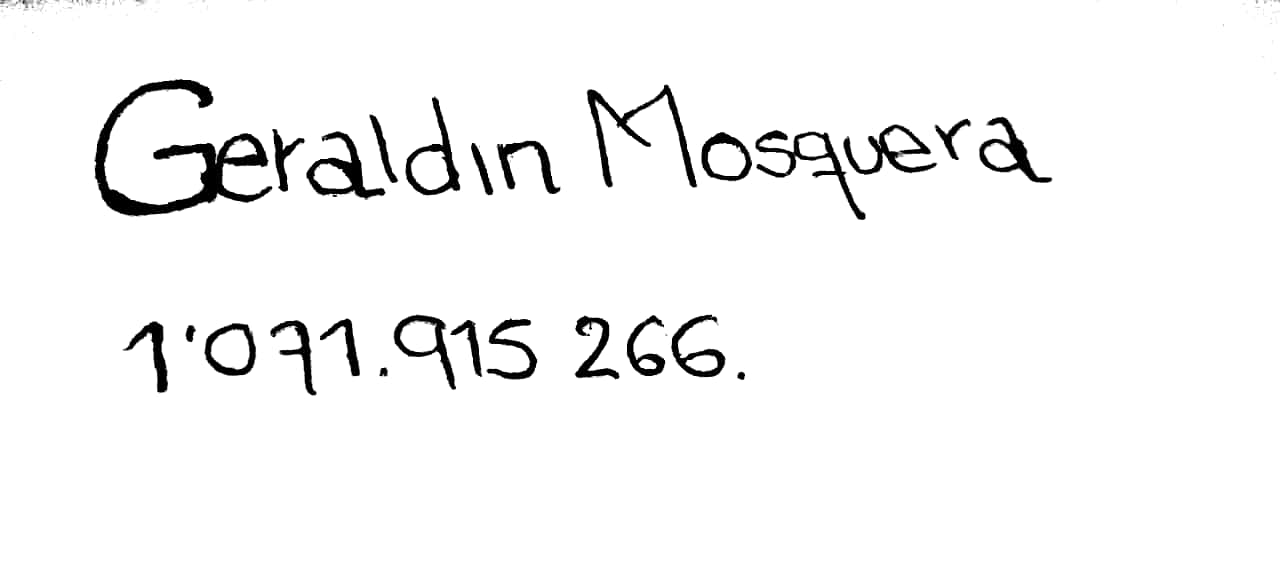 Geraldin Mosquera
1'071.915 266.